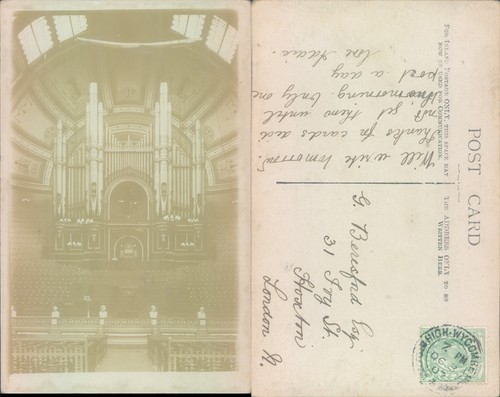 POST CARD
FOR INLAND POSTAGE ONLY, THIS SPACE MAY
NOW BE USED FOR CORRESPONDENCE.
THE ADDRESS ONLY TO BE
WRITTEN HERE.
Will write tomorrow.
Thanks for cards did
not get them until
this morning. Only one
post a day
G Beresford Esq
31 Ivy St.
Hoxton
London N.
HIGH-WYCOMBE
7 PM
OC